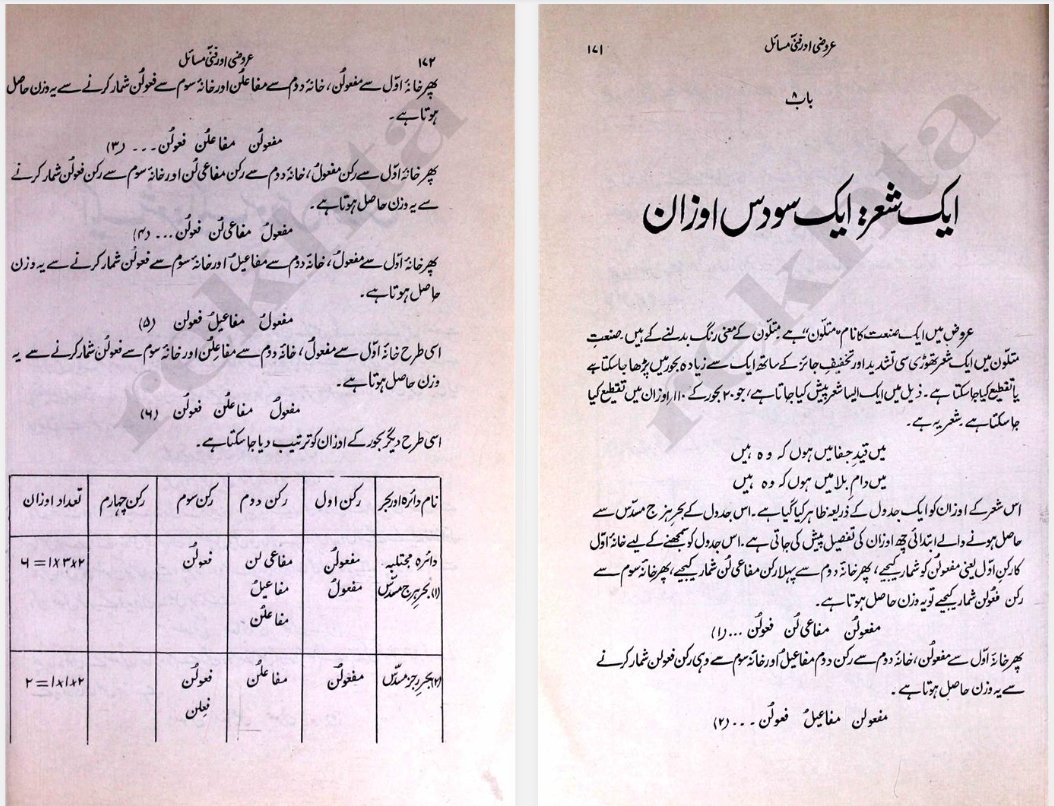 ۱۷۱
عروضی اور فنی مسائل
باب ۸
ایک شعر: ایک سو دس اوزان
عروض میں ایک صنعت کا نام "متلوّن" ہے متلوّن کے معنی رنگ بدلنے کے ہیں۔ صنعتِ
متلوّن میں ایک شعر تھوڑی سی تشدید اور تخفیفِ جائز کے ساتھ ایک سے زیادہ بحور میں پڑھا جا سکتا ہے
یا تقطیع کیا جا سکتا ہے۔ ذیل میں ایک ایسا شعر پیش کیا جاتا ہے، جو ۲۰ بحور کے ۱۱۰ اوزان میں تقطیع کیا
جا سکتا ہے شعر یہ ہے۔
میں قیدِ جفا میں ہوں کہ وہ ہیں
میں دامِ بلا میں ہوں کہ وہ ہیں
اس شعر کے اوزان کو ایک جدول کے ذریعہ ظاہر کیا گیا ہے۔ اس جدول کے بحرِ ہزج مسدّس سے
حاصل ہونے والے ابتدائی چھ اوزان کی تفصیل پیش کی جاتی ہے۔ اس جدول کو سمجھنے کے لیے خانۂ اوّل
کا رکنِ اوّل یعنی مفعولُن کو شمار کیجیے، پھر خانۂ دوم سے پہلا رکن مفاعی لُن شمار کیجیے، پھر خانۂ سوم سے
رکن فعولُن شمار کیجیے تو یہ وزن حاصل ہوتا ہے۔
مفعولُن مفاعی لُن فعولُن ... (۱)
پھر خانۂ اوّل سے مفعولُن، خانۂ دوم سے رکن دوم مفاعیلُ اور خانۂ سوم سے وہی رکن فعولن شمار کرنے
سے یہ وزن حاصل ہوتا ہے۔
مفعولن مفاعیلُ فعولُن ... (۲)
۱۷۲
عروضی اور فنی مسائل
پھر خانۂ اوّل سے مفعولُن، خانۂ دوم سے مفاعلُن اور خانۂ سوم سے فعولُن شمار کرنے سے یہ وزن حاصل
ہوتا ہے۔
مفعولُن مفاعلُن فعولُن ... (۳)
پھر خانۂ اوّل سے رکن مفعولُ، خانۂ دوم سے رکن مفاعی لُن اور خانۂ سوم سے رکن فعولُن شمار کرنے
سے یہ وزن حاصل ہوتا ہے۔
مفعولُ مفاعی لُن فعولُن ... (۴)
پھر خانۂ اوّل سے مفعولُ، خانۂ دوم سے مفاعیلُ اور خانۂ سوم سے فعولُن شمار کرنے سے یہ وزن
حاصل ہوتا ہے۔
مفعولُ مفاعیلُ فعولن (۵)
اسی طرح خانۂ اوّل سے مفعولُ، خانۂ دوم سے مفاعلُن اور خانۂ سوم سے فعولُن شمار کرنے سے یہ
وزن حاصل ہوتا ہے۔
مفعولُ مفاعلُن فعولُن (۶)
اسی طرح دیگر بحور کے اوزان کو ترتیب دیا جا سکتا ہے۔
نام دائرہ اور بحر رکن اول رکن دوم رکن سوم رکن چہارم تعداد اوزان
دائرہ مجتلبہ۔ مفعولُن مفاعی لن فعولُن ۲×۳×۱=۶
(۱) بحر ہزج مسدّس مفعولُ مفاعیلُ
مفاعلُن
(۲) بحرِ رجز مسدّس مفعولُن مفاعلُن فعولُن ۲×۱×۱=۲
فعِلن
rekhta
rekhta